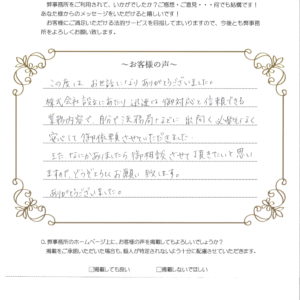 弊事務所をご利用されて、いかがでしたか？ご感想・ご意見・・・何でも結構です！
あなた様からのメッセージをいただけると嬉しいです！
お客様にご満足いただける法的サービスを目指してまいりますので、今後とも弊事務
所をよろしくお願い致します。
～お客様の声～
この度は、お世話になりありがとうございました。
株式会社設立にあたり迅速な御対応と信頼できる
業務内容で、自分や法務局などに出向く必要もなく
安心して御依頼させていただきました。
また、なにかありましたら御相談させて頂きたいと思い
ますが、どうぞよろしくお願い致します。
ありがとうございました。
Q.弊事務所のホームページ上に、お客様の声を掲載してもよろしいでしょうか？
掲載をご承諾いただいた場合も、個人が特定されないように十分に配慮させていただきます。
□掲載しても良い　□掲載しないでほしい